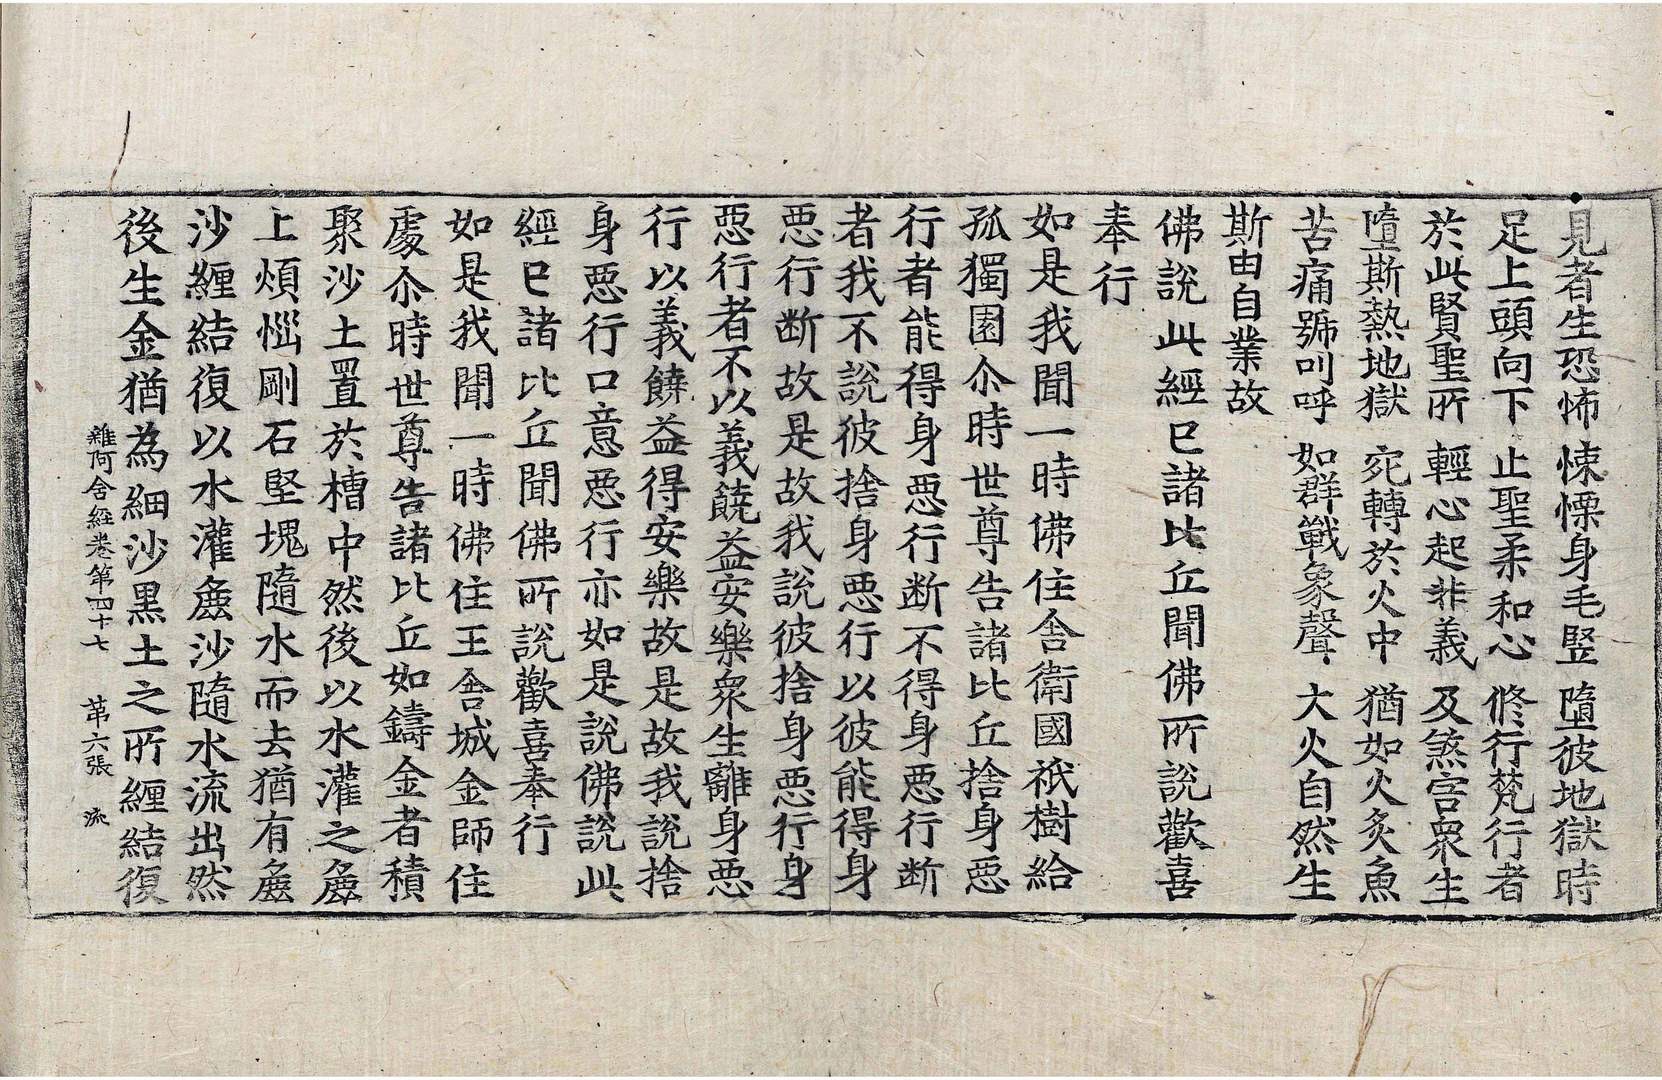 見者生恐怖　悚慄身毛竪　墮彼地獄時
足上頭向下　止聖柔和心　修行梵行者
於此賢聖所　輕心起非義　及煞害衆生
墮斯熱地獄　宛轉於火中　猶如火炙魚
苦痛號叫呼　如群戰象聲　大火自然生
斯由自業故
佛說此經已諸比丘聞佛所說歡喜
奉行
如是我聞一時佛住舍衛國祇樹給
孤獨園尒時世尊告諸比丘捨身惡
行者能得身惡行断不得身惡行断
者我不說彼捨身惡行以彼能得身
惡行断故是故我說彼捨身惡行身
惡行者不以義饒益安樂衆生離身惡
行以義饒益得安樂故是故我說捨
身惡行口意惡行亦如是說佛說此
經已諸比丘聞佛所說歡喜奉行
如是我聞一時佛住王舍城金師住
處尒時世尊告諸比丘如鑄金者積
聚沙土置於槽中然後以水灌之麁
上煩惱剛石堅塊隨水而去猶有麁
沙纒結復以水灌麁沙隨水流出然
後生金猶為細沙黑土之所纒結復
雜阿含經卷第四十七　第六張　流